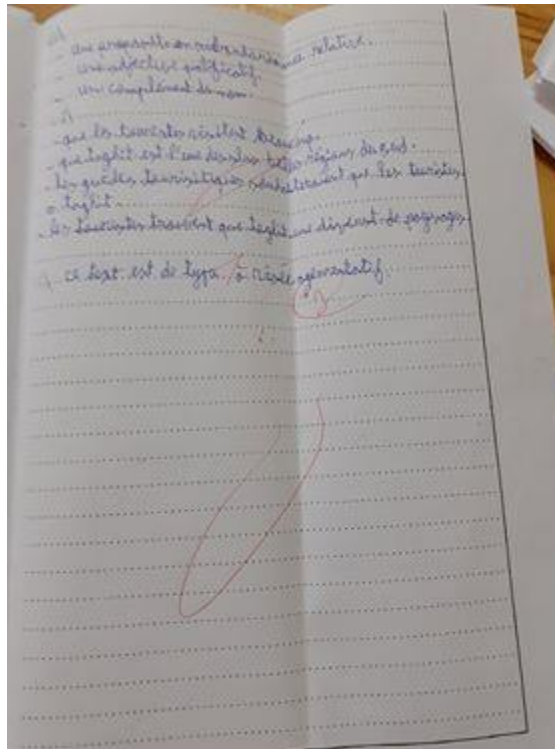 - une proposition subordonnée relative.
- une adjective qualificatif.
- un complément de nom.
- que les touristes visitent beaucoup.
- que taghit est l'une des plus belles régions du sud.
- les guides touristiques souhaiteraient que les touristes
taghit.
- les touristes trouvent que taghit une de paysages.
ce text est de type à visée